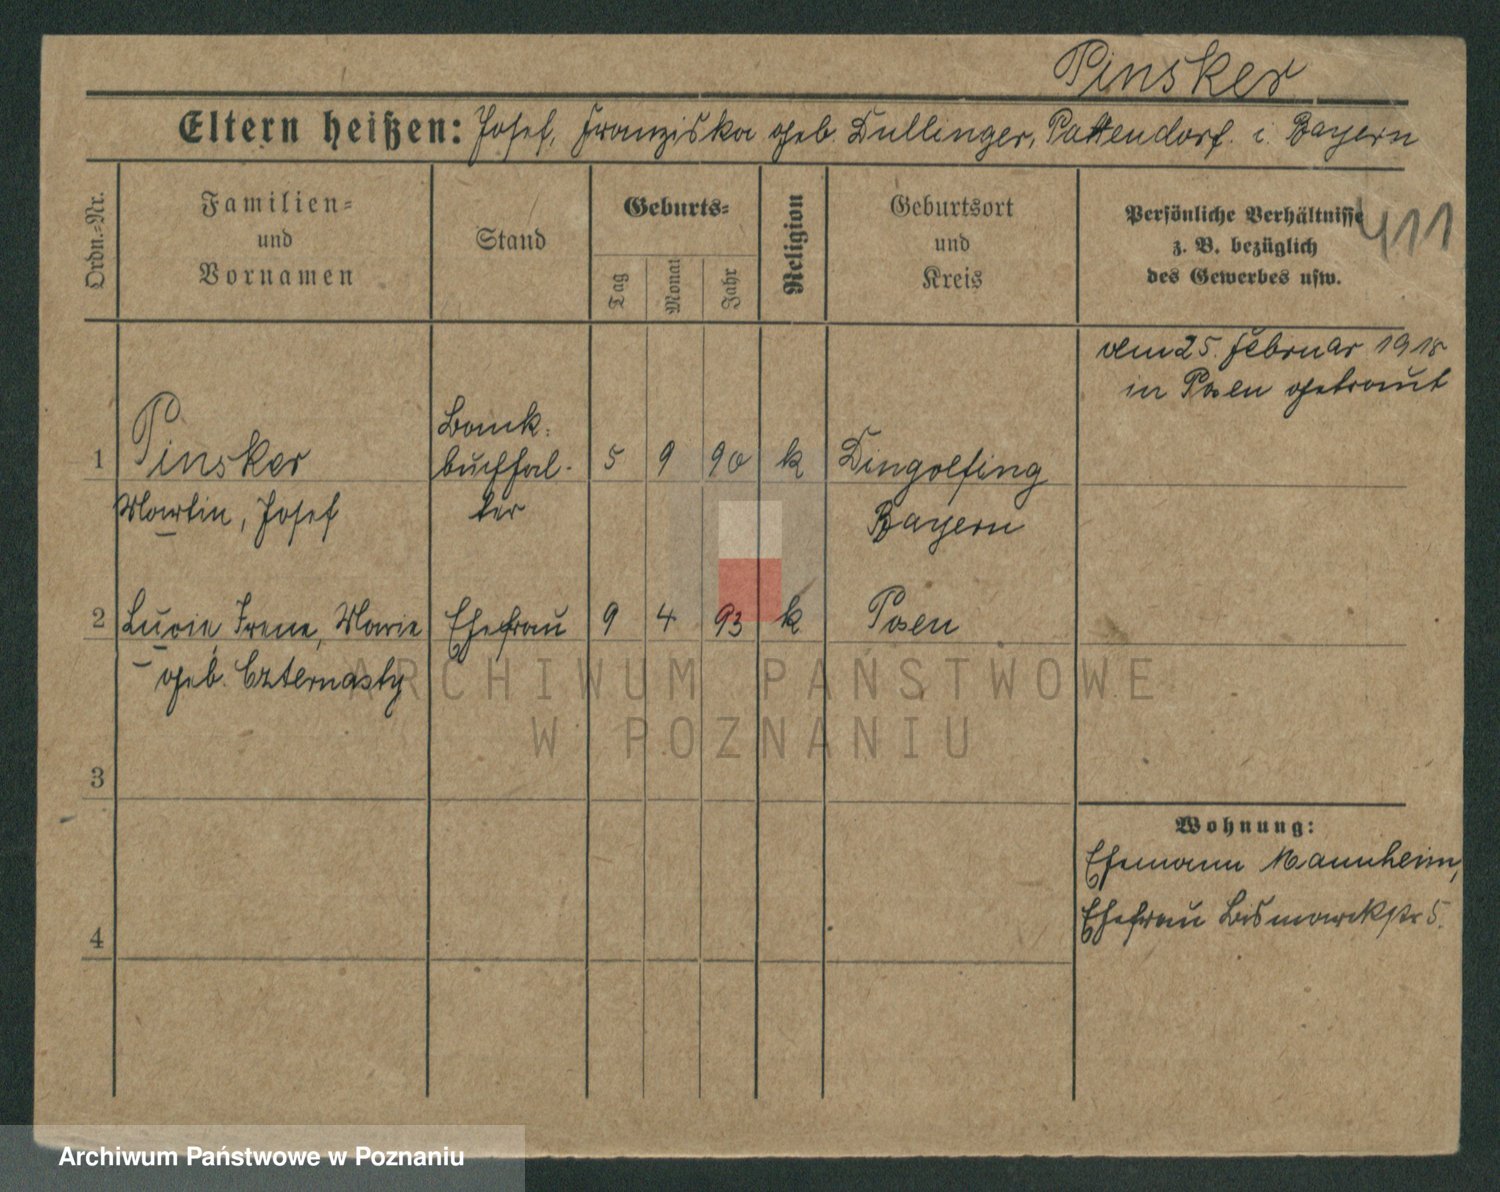 Pinsker
Eltern heißen: Josef, Franziska geb. Dullinger, Pattendorf. i. Bayern
Ordn.-Nr.
Familien-
und
Vornamen
Stand
Geburts-
Tag
Monat
Jahr
Religion
Geburtsort
und
Kreis
Persönliche Verhältnisse
z. B. bezüglich
des Gewerbes usw.
411
dem 25. Februar 1918
in Posen getraut
1 Pinsker
Martin, Josef
Bank-
buchhal-
ter
5 9 90 k
Dingolfing
Bayern
2 Lucie, Irene, Marie
geb. Czternasty
Ehefrau 9 4 93 k Posen
3
4
Wohnung:
Ehemann Mannheim,
Ehefrau Bismarckstr 5.
ARCHIWUM PAŃSTWOWE
W POZNANIU
Archiwum Państwowe w Poznaniu